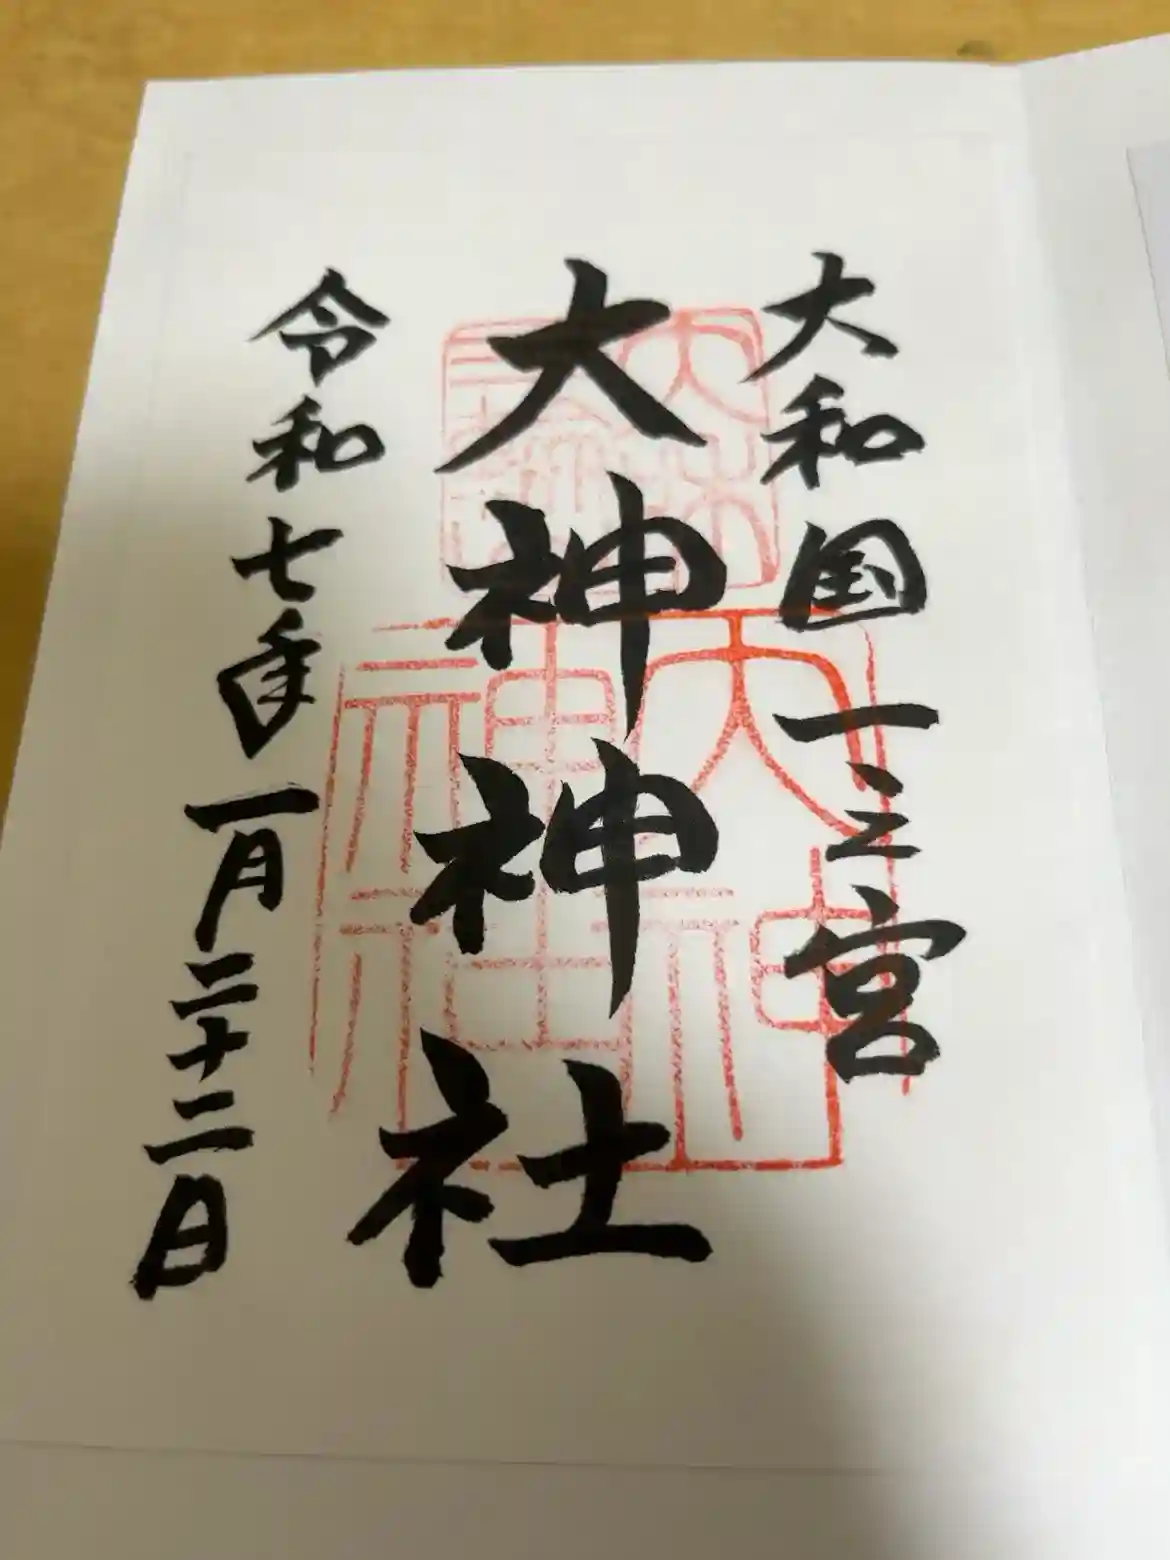 大和国一之宮
大神神社
令和七年一月二十二日
大神神社